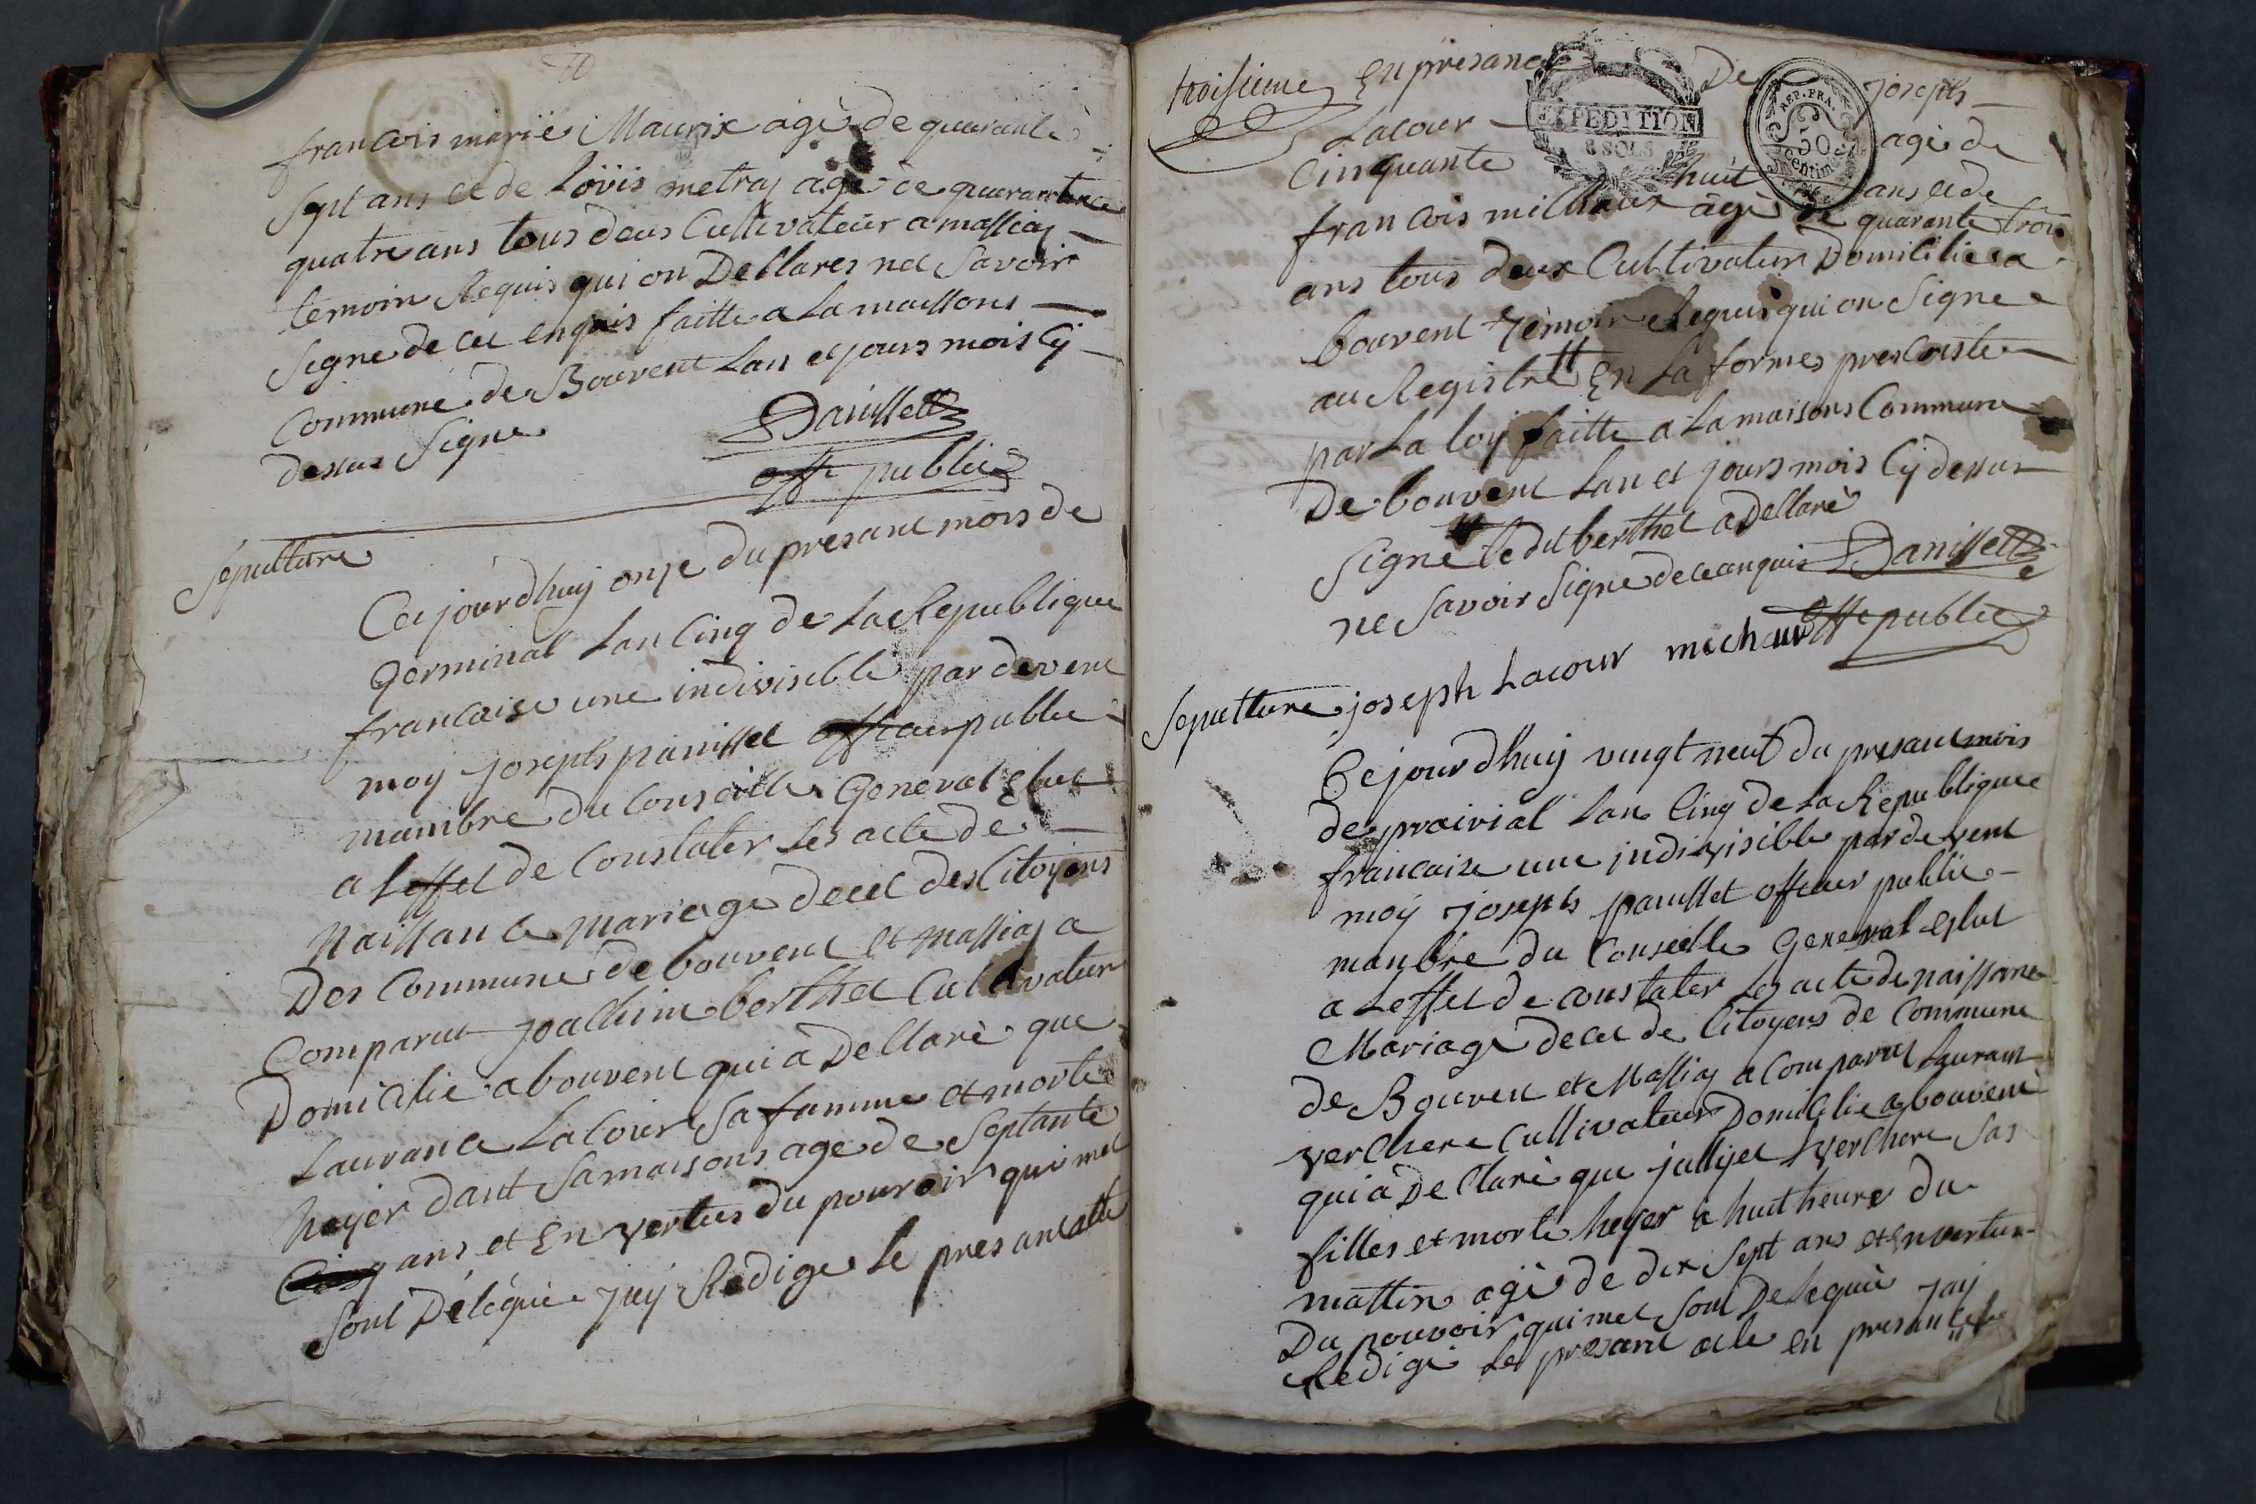 francois marie Maurix agè de quarante
sept ans et de Loüis metras agè de quarante
quatre ans tous deus Cultivateur a massias
temoin Requis qui on Dellares ne Savoir
Signe de ce enquis faitte a La maissons
Commune de Bouvent Lan et jours mois Cÿ
dessus Signe
Panissett
off publie
Sepulture
Ce jourdhuy onze du presant mois de
germinal Lan Cinq de La Republique
francaise une indivisible par devent
moy joseph panisset officier publie
mambre du Conseille General Elut
a Leffet de Constater Les acte de
Naissance mariage decet des Citoyens
Des Commune de bouvent et massias a
Comparut joachim berthet Cultivateur
Domicilie a bouvent qui à Dellarè que
Laurance Lacour Sa famme et morte
heyer dant Sa maisons age de Septante
Cinq ans et En vertus du pouvoir qui met
Sont Délégué jay Redige Le presant atte
troisieme En presance De joseph
Lacour agè de
Cinquante huit ans et de
francois michaux agè de quarante trois
ans tous deux Cultivateur Domicilie a
bouvent temoin Requis qui on Signe
au Registre En La formes presconste
par La loy faitte a La maisons Commune
De bouvent Lan et jours mois Cÿ dessus
Signe Le dit berthet a Dellarè
ne Savoir Signe de ce anquis Panissett
joseph Lacour michau off publie
Sepulture
Ce jour dhuy vingt neuf du presant mois
de prairial Lan Cinq de La Republique
francaize une jndivisible par devent
moÿ joseph panisset officier publie
manbre du Conseille General Elut
a Leffet de constater Les acte de naissance
Mariage decet de Citoyens de Commune
de Bouvent et Massias a Comparut Laurant
verchere Cultivateur Domicilie a bouvent
qui à De Clarè que jullyet verchere Sas
filles et morte heyer a huit heure du
mattin agè de dix Sept ans et En vertus
Du pouvoir qui met Sont Deleguè jay
Redigè Le presant acte en presance
EXPEDITION
6 SOLS
REP. FRA.
50
Centim